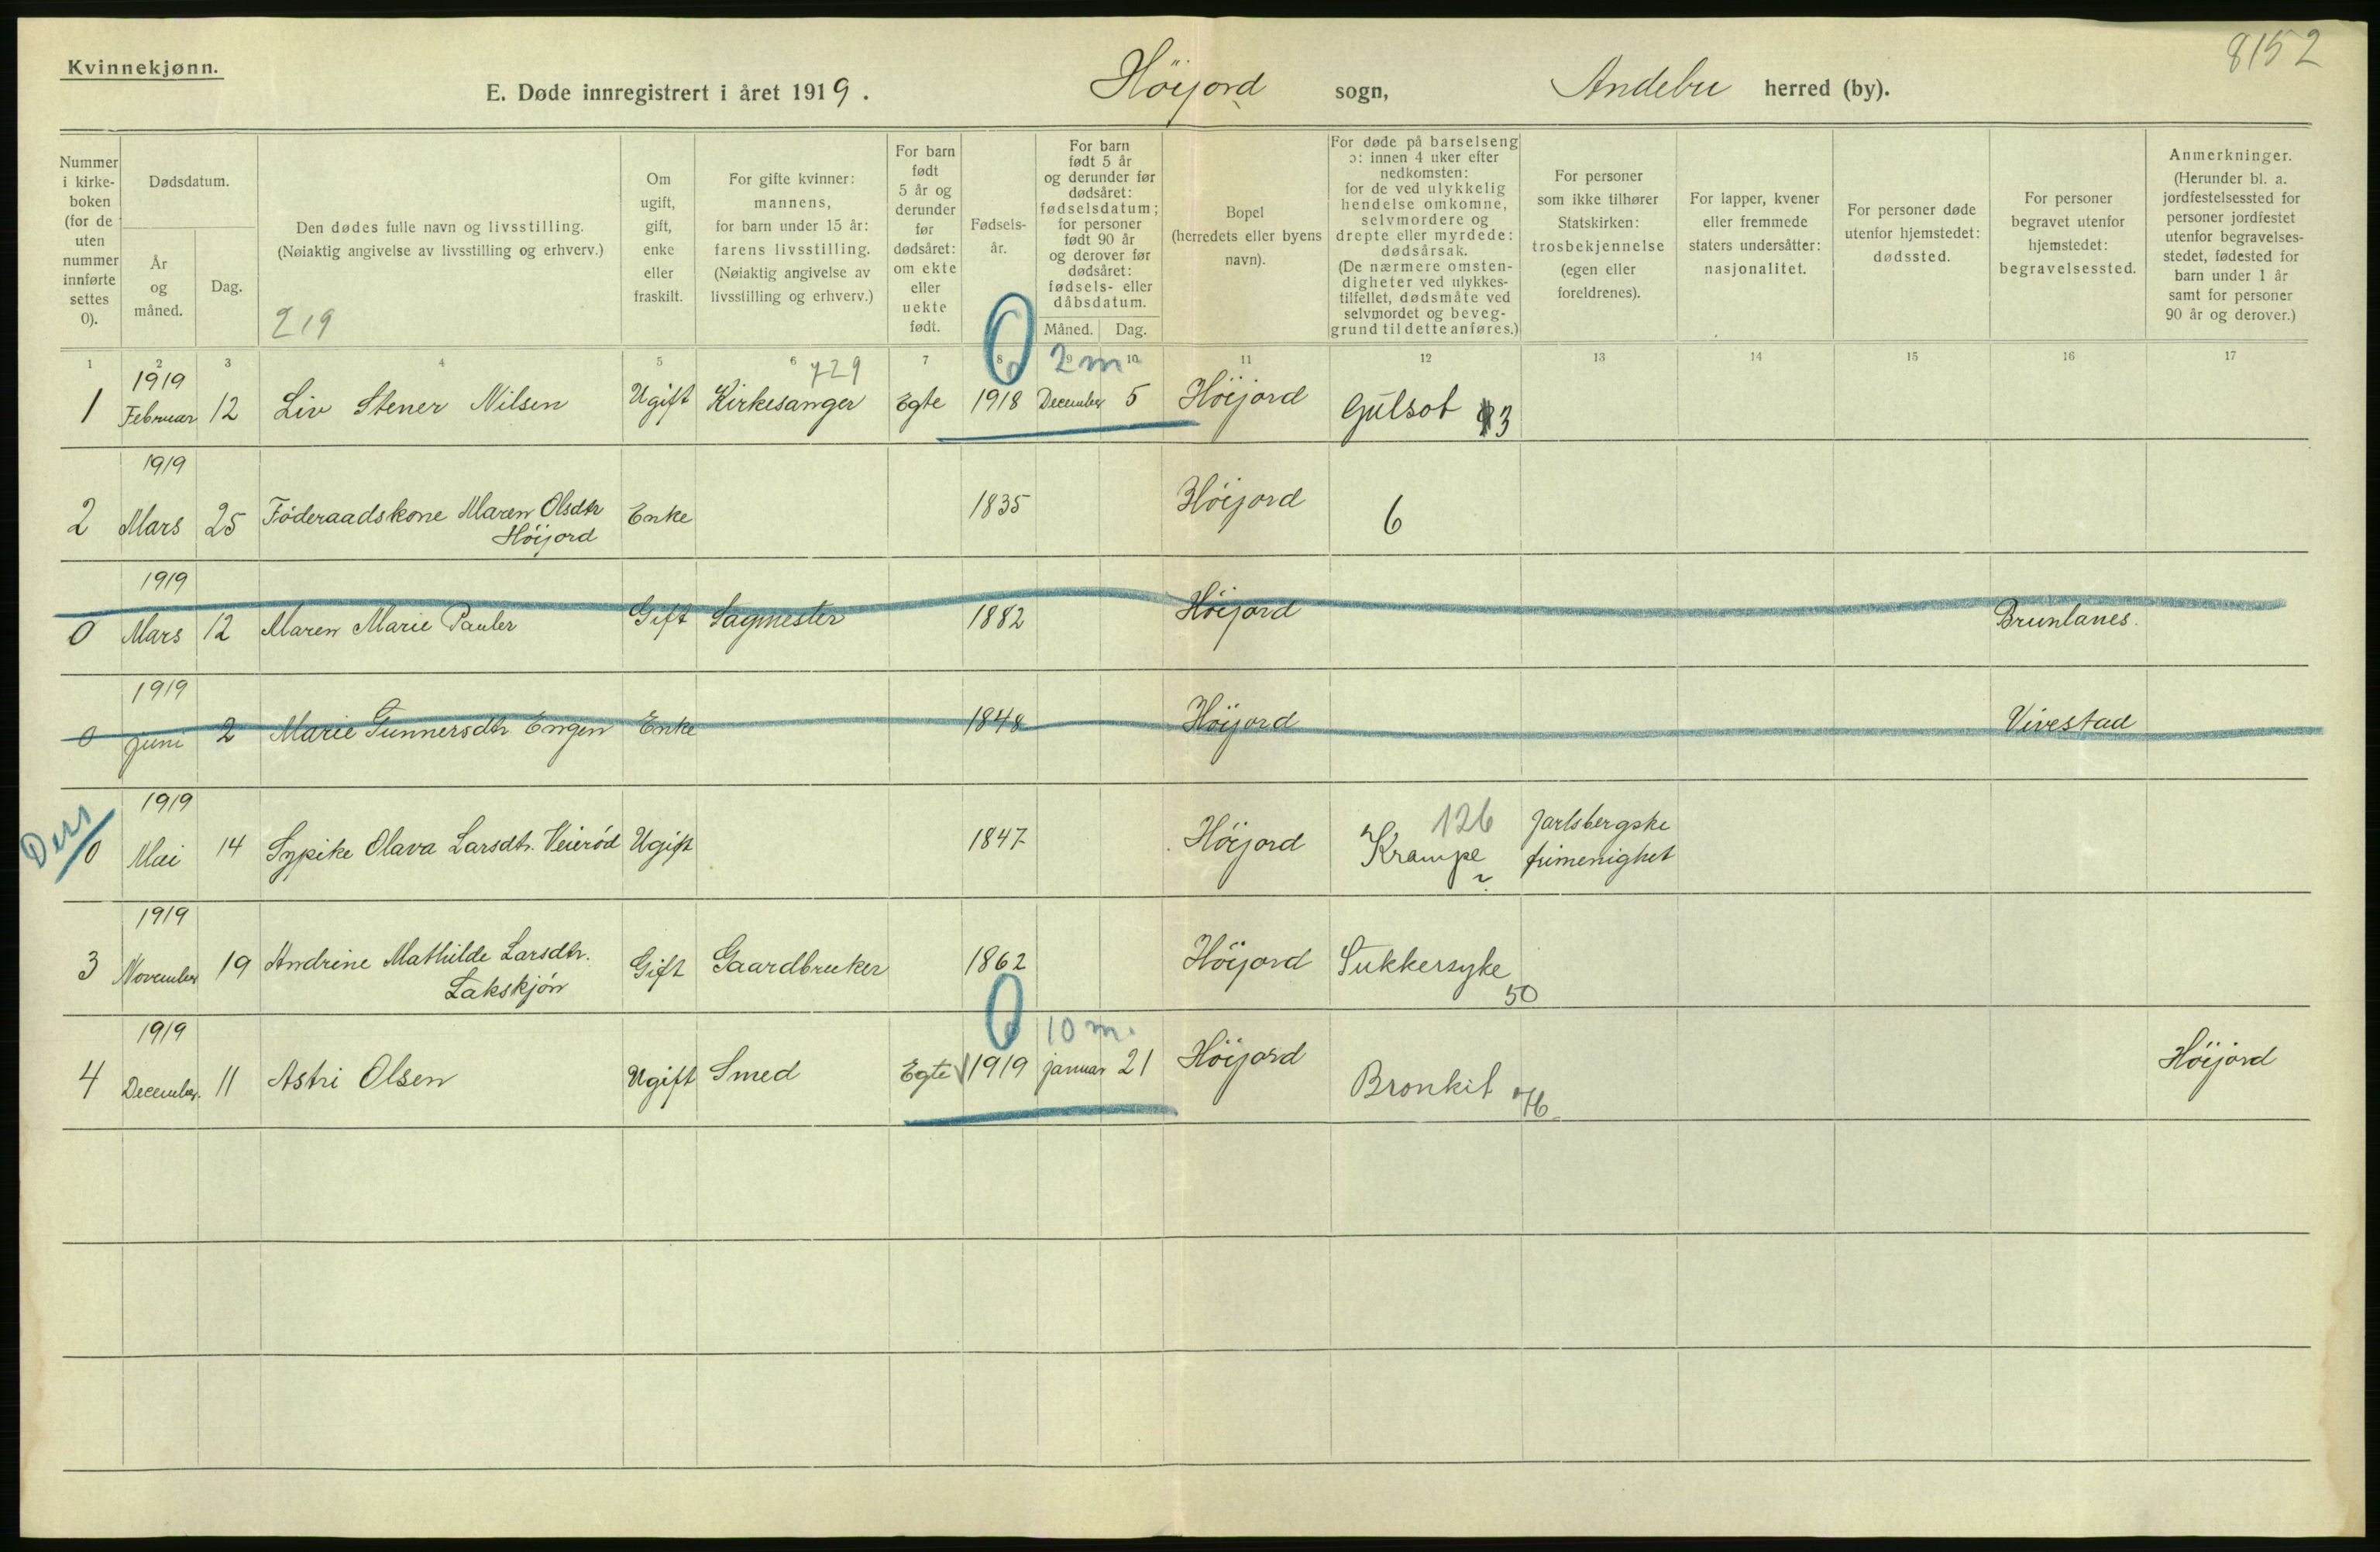 Kvinnekjønn.
8152
E. Døde innregistrert i året 1919. Höijord sogn, Andebu herred (by).
Nummer i kirke-boken (for de uten nummer innførte settes 0).
Dødsdatum.
År og måned.
Dag.
Den dødes fulle navn og livsstilling.
(Nøiaktig angivelse av livsstilling og erhverv.)
219
Om ugift, gift, enke eller fraskilt.
For gifte kvinner: mannens, for barn under 15 år: farens livsstilling. (Nøiaktig angivelse av livsstilling og erhverv.)
For barn født 5 år og derunder før dødsåret: om ekte eller uekte født.
Fødsels-år.
For barn født 5 år og derunder før dødsåret: fødselsdatum; for personer født 90 år og derover før dødsåret: fødsels- eller dåbsdatum.
Måned. Dag.
Bopel (herredets eller byens navn).
For døde på barselseng ɔ: innen 4 uker efter nedkomsten: for de ved ulykkelig hendelse omkomne, selvmordere og drepte eller myrdede: dødsårsak. (De nærmere omsten-digheter ved ulykkes-tilfellet, dødsmåte ved selvmordet og beveg-grund til dette anføres.)
For personer som ikke tilhører Statskirken: trosbekjennelse (egen eller foreldrenes).
For lapper, kvener eller fremmede staters undersåtter: nasjonalitet.
For personer døde utenfor hjemstedet: dødssted.
For personer begravet utenfor hjemstedet: begravelsessted.
Anmerkninger. (Herunder bl. a. jordfestelsessted for personer jordfestet utenfor begravelses-stedet, fødested for barn under 1 år samt for personer 90 år og derover.)
1 2 3 4 5 6 7 8 9 10 11 12 13 14 15 16 17
1919 729 2 m
1 Februar 12 Liv Stener Nilsen Ugift Kirkesanger Egte 1918 December 5 Höijord Gulsot 93
1919
2 Mars 25 Föderaadskone Maren Olsdtr Höijord Enke 1835 Höijord 6
1919
0 Mars 12 Maren Marie Pauler Gift Sagmester 1882 Höijord Brunlanes.
1919
0 juni 2 Marie Gunnersdtr Engen Enke 1848 Höijord Vivestad
Diss
1919
0 Mai 14 Sypike Olava Larsdtr. Veieröd Ugift 1847 Höijord Krampe 126 Jarlsbergske frimenighet
1919
3 November 19 Andrine Mathilde Larsdtr. Lakskjön Gift Gaardbruker 1862 Höijord Sukkersyke 50
1919 10 m.
4 December. 11 Astri Olsen Ugift Smed Egte 1919 januar 21 Höijord Bronkit 76 Höijord